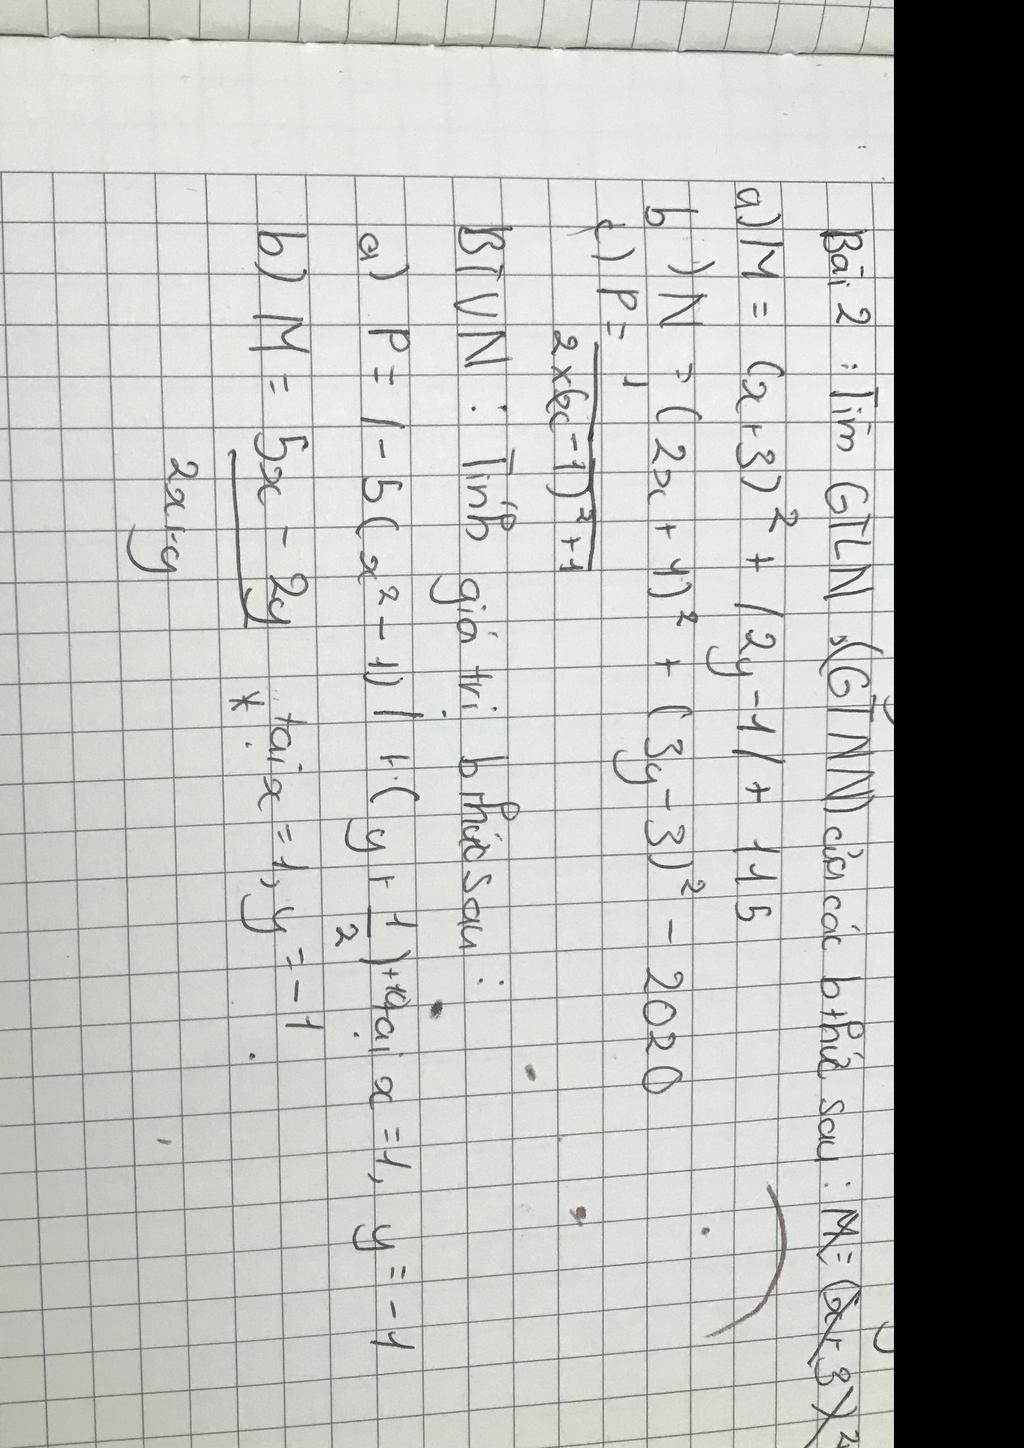 Bài 2 : Tìm GTLN, (GTNN) của các bthức sau : M = (x+3)²
a) M = (x+3)² + |2y-1| + 115
b) N = (2x + 1)² + (3y-3)² - 2020
c) P = 1
2x(x-1)²+1
BTVN : Tính giá trị bthức sau :
a) P = |-5(x²-1)| + (y + 1/2) tại x = 1, y = -1
b) M = 5x - 2y tại x = 1, y = -1
2x+y *